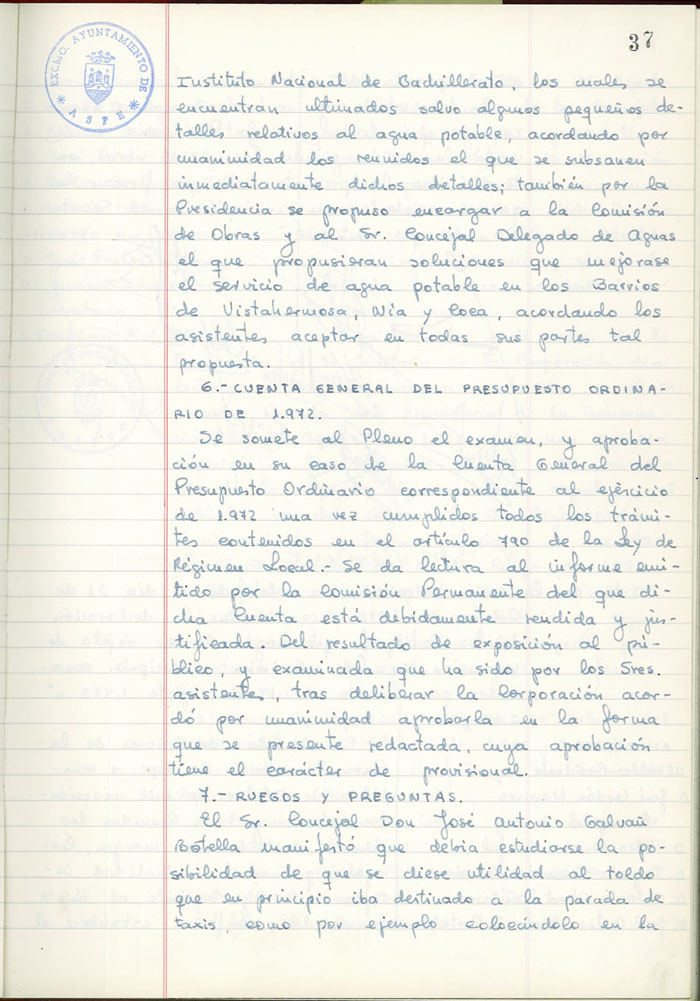 37
EXCMO. AYUNTAMIENTO DE
ASPE
Instituto Nacional de Bachillerato, los cuales se
encuentran ultimados salvo algunos pequeños de-
talles relativos al agua potable, acordando por
unanimidad los reunidos el que se subsanen
inmediatamente dichos detalles; también por la
Presidencia se propuso encargar a la Comisión
de Obras y al Sr. Concejal Delegado de Aguas
el que propusieran soluciones que mejorase
el servicio de agua potable en los Barrios
de Vistahermosa, Nía y Coca, acordando los
asistentes aceptar en todas sus partes tal
propuesta.
6.- CUENTA GENERAL DEL PRESUPUESTO ORDINA-
RIO DE 1.972.
Se somete al Pleno el examen, y aproba-
ción en su caso de la Cuenta General del
Presupuesto Ordinario correspondiente al ejercicio
de 1.972 una vez cumplidos todos los trámi-
tes contenidos en el artículo 790 de la Ley de
Régimen Local.- Se da lectura al informe emi-
tido por la Comisión Permanente del que di-
cha Cuenta está debidamente rendida y jus-
tificada. Del resultado de exposición al pú-
blico, y examinada que ha sido por los Sres.
asistentes, tras deliberar la Corporación acor-
dó por unanimidad aprobarla en la forma
que se presente redactada, cuya aprobación
tiene el carácter de provisional.
7.- RUEGOS Y PREGUNTAS.
El Sr. Concejal Don José Antonio Galvañ
Botella manifestó que debia estudiarse la po-
sibilidad de que se diese utilidad al toldo
que en principio iba destinado a la parada de
taxis, como por ejemplo colocándolo en la